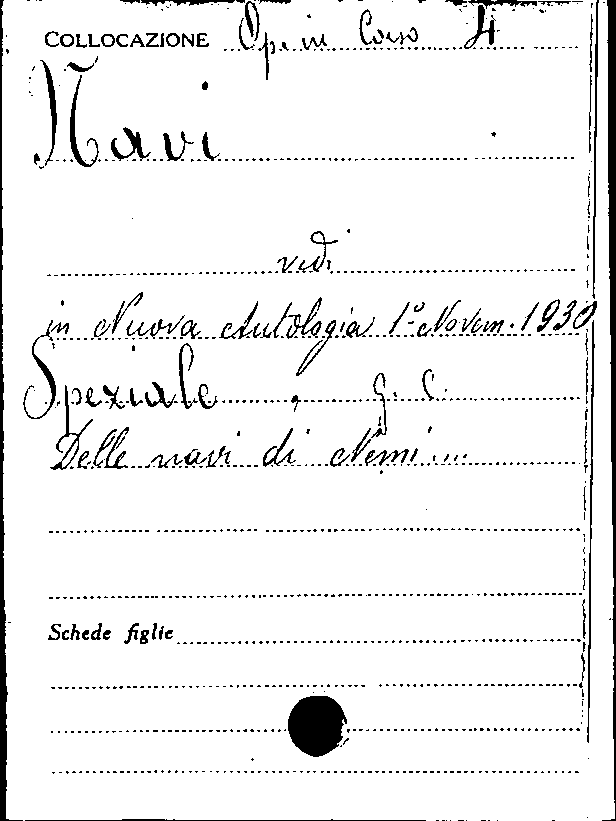 COLLOCAZIONE Op. in Corso 4
Navi
vedi
in Nuova Antologia 1° Novem. 1930
Speziale, G. C.
Delle navi di Nemi....
Schede figlie